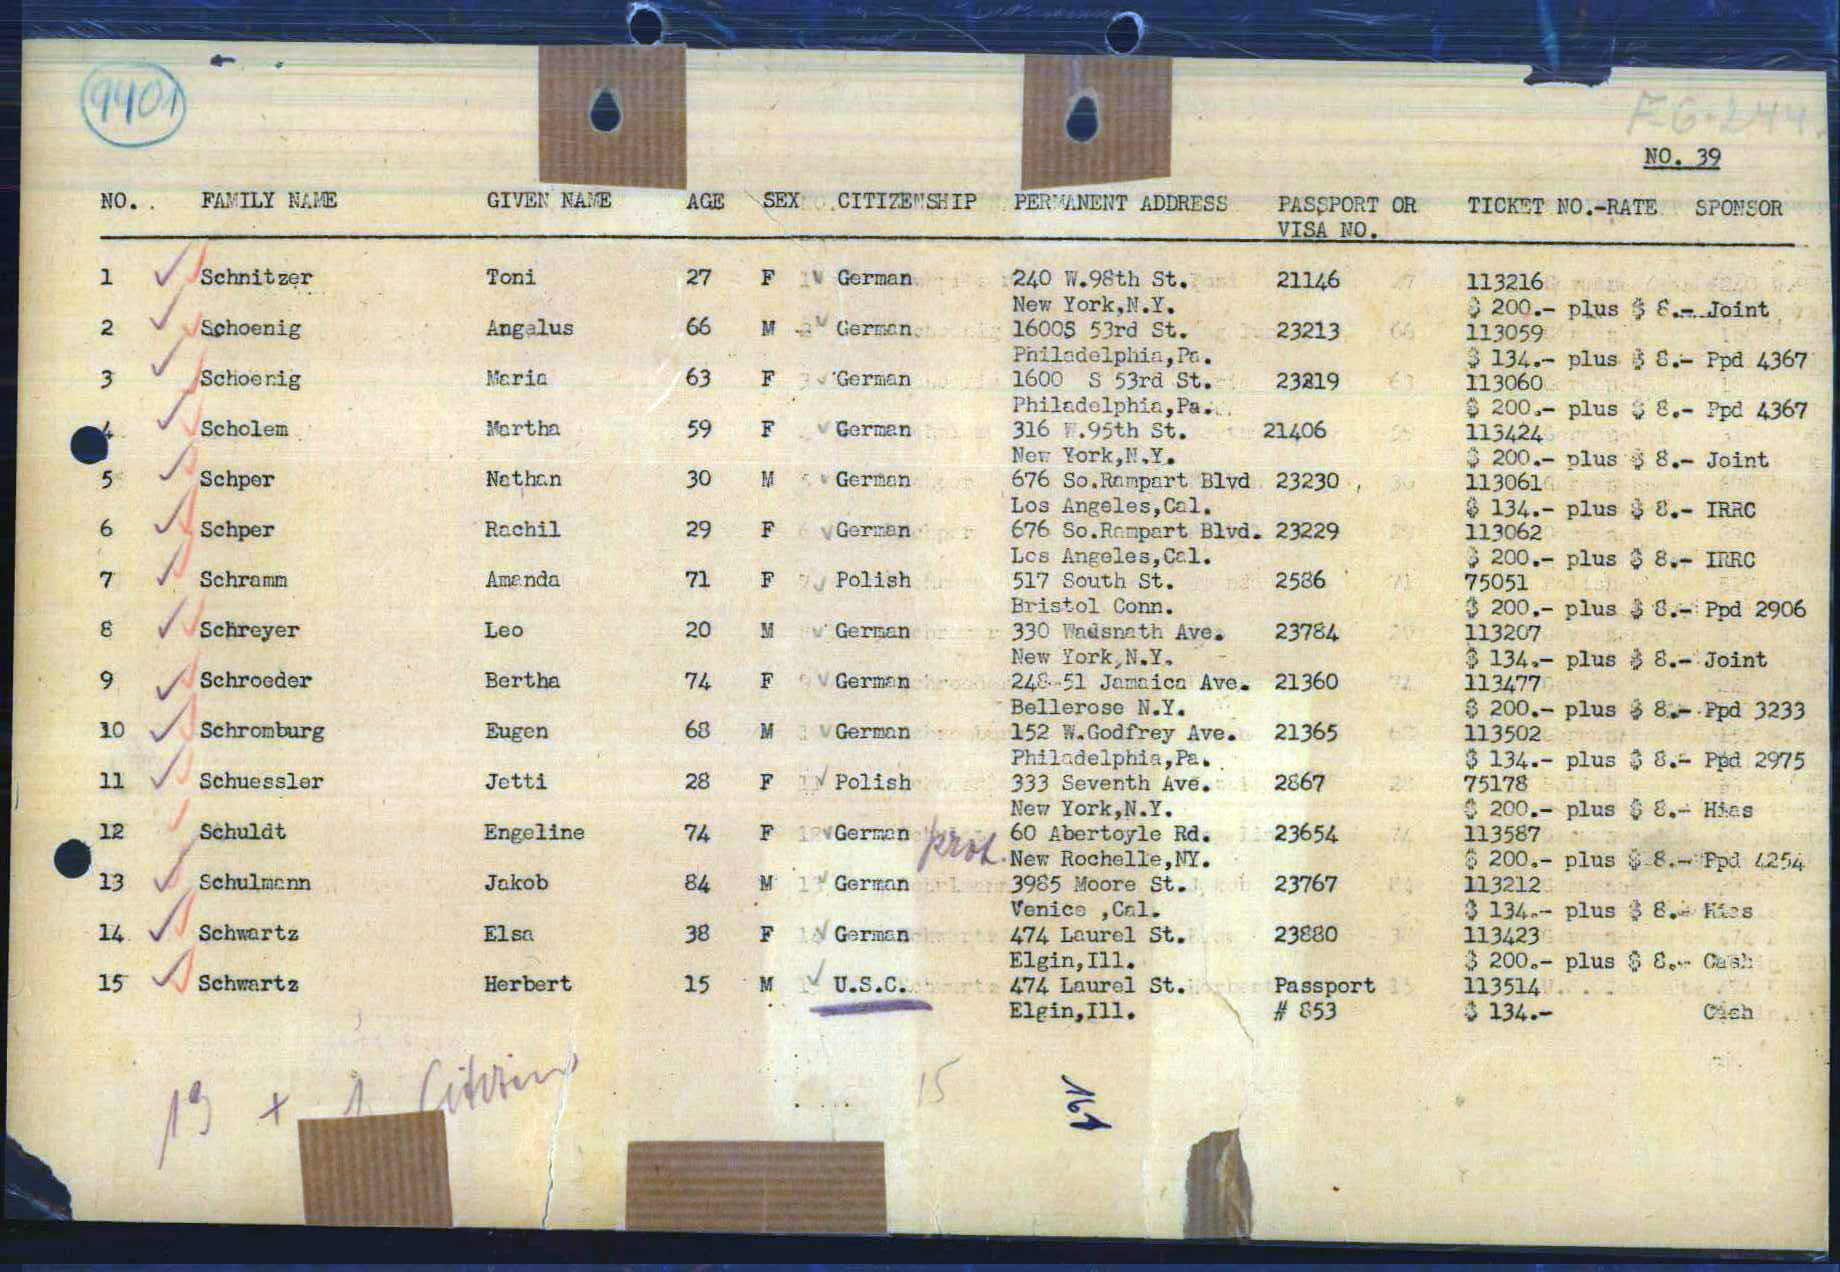 9401
NO. 39
NO. FAMILY NAME GIVEN NAME AGE SEX CITIZENSHIP PERMANENT ADDRESS PASSPORT OR TICKET NO.-RATE SPONSOR
VISA NO.
1 Schnitzer Toni 27 F German 240 W.98th St. 21146 113216
New York,N.Y. $ 200.- plus $ 8.- Joint
2 Schoenig Angelus 66 M German 1600S 53rd St. 23213 113059
Philadelphia,Pa. $ 134.- plus $ 8.- Ppd 4367
3 Schoenig Maria 63 F German 1600 S 53rd St. 23219 113060
Philadelphia,Pa. $ 200.- plus $ 8.- Ppd 4367
4 Scholem Martha 59 F German 316 W.95th St. 21406 113424
New York,N.Y. $ 200.- plus $ 8.- Joint
5 Schper Nathan 30 M German 676 So.Rampart Blvd 23230 113061
Los Angeles,Cal. $ 134.- plus $ 8.- IRRC
6 Schper Rachil 29 F German 676 So.Rampart Blvd. 23229 113062
Los Angeles,Cal. $ 200.- plus $ 8.- IRRC
7 Schramm Amanda 71 F Polish 517 South St. 2586 75051
Bristol Conn. $ 200.- plus $ 8.- Ppd 2906
8 Schreyer Leo 20 M German 330 Wadsnath Ave. 23784 113207
New York,N.Y. $ 134.- plus $ 8.- Joint
9 Schroeder Bertha 74 F German 248-51 Jamaica Ave. 21360 113477
Bellerose N.Y. $ 200.- plus $ 8.- Ppd 3233
10 Schromburg Eugen 68 M German 152 W.Godfrey Ave. 21365 113502
Philadelphia,Pa. $ 134.- plus $ 8.- Ppd 2975
11 Schuessler Jetti 28 F Polish 333 Seventh Ave. 2867 75178
New York,N.Y. $ 200.- plus $ 8.- Hias
12 Schuldt Engeline 74 F German 60 Abertoyle Rd. 23654 113587
New Rochelle,NY. $ 200.- plus $ 8.- Ppd 4254
13 Schulmann Jakob 84 M German 3985 Moore St. 23767 113212
Venice ,Cal. $ 134.- plus $ 8.- Hias
14 Schwartz Elsa 38 F German 474 Laurel St. 23880 113423
Elgin,Ill. $ 200.- plus $ 8.- Cash
15 Schwartz Herbert 15 M U.S.C. 474 Laurel St. Passport 113514
Elgin,Ill. # 853 $ 134.- Cash
15
161